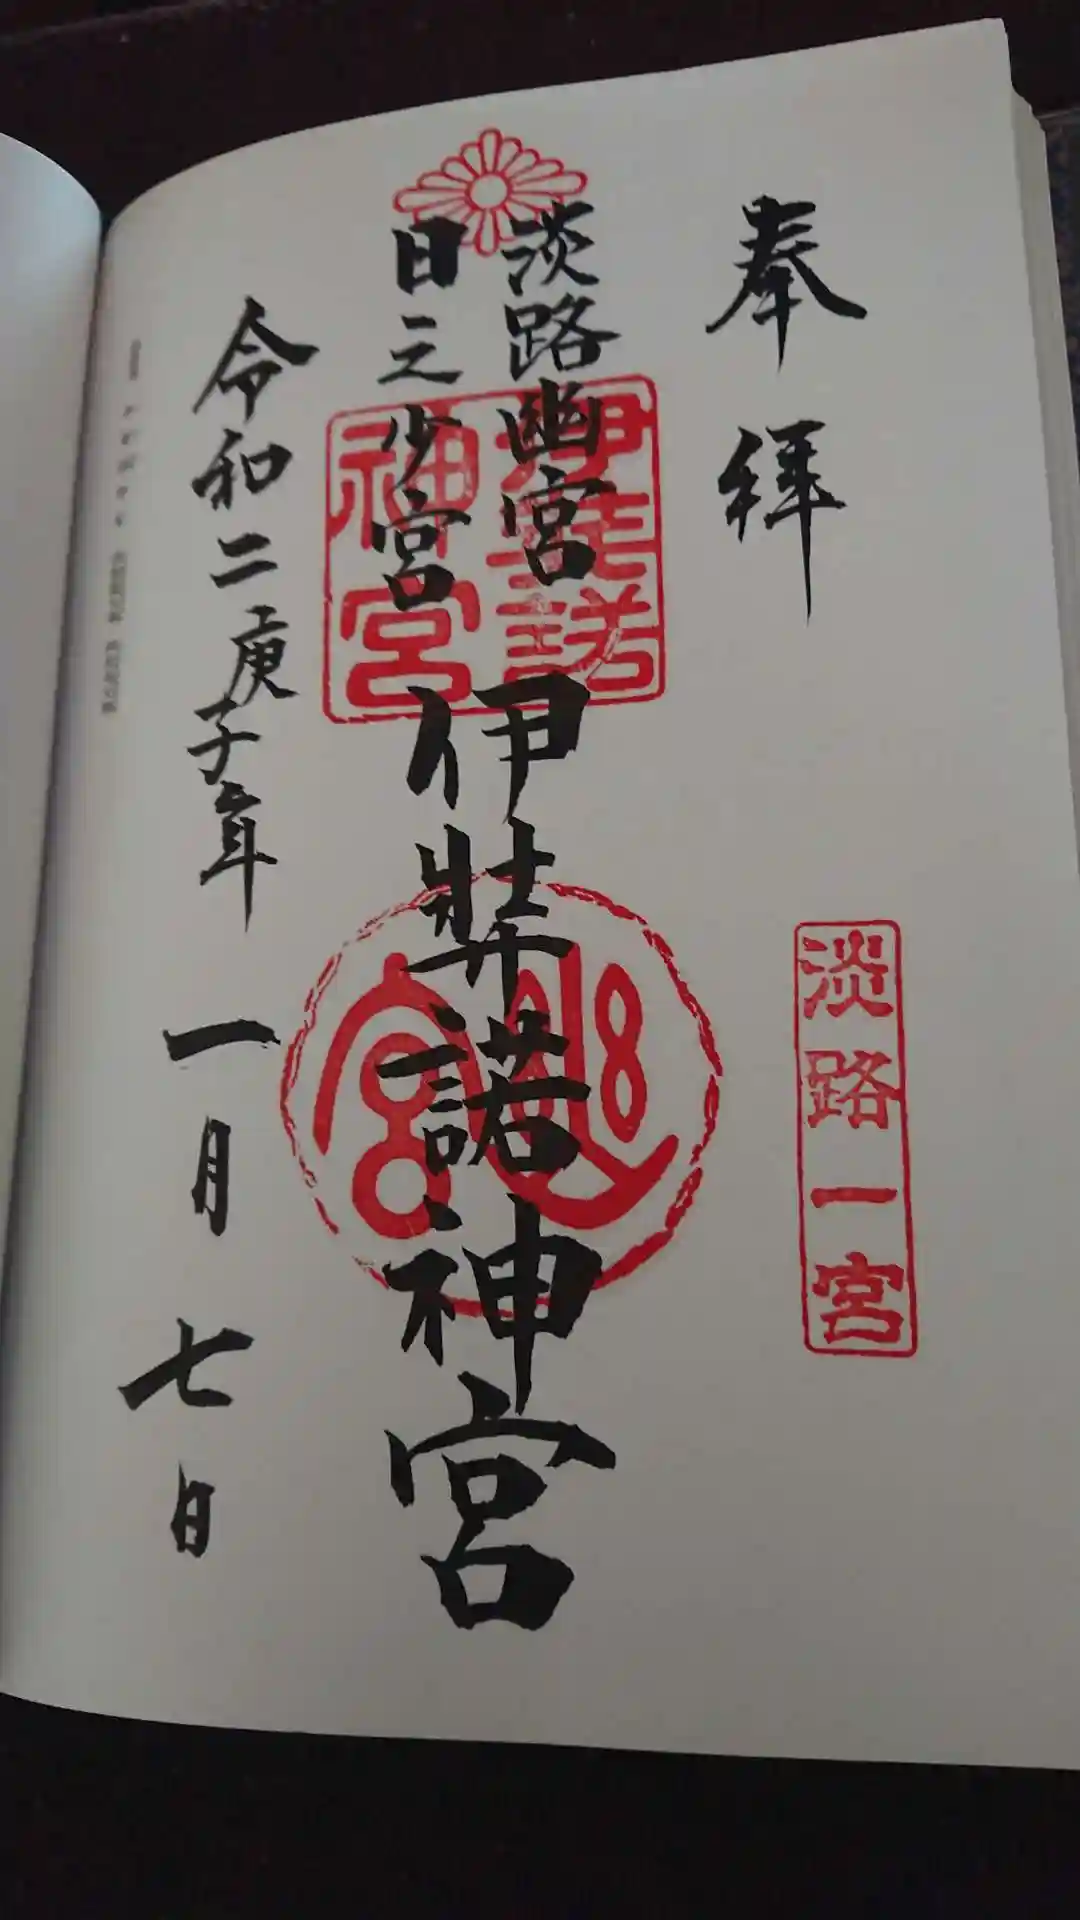 奉拝
淡路一宮
淡路幽宮
日之少宮
伊弉諾神宮
伊弉諾
神宮
幽
宮
令和二庚子年一月七日